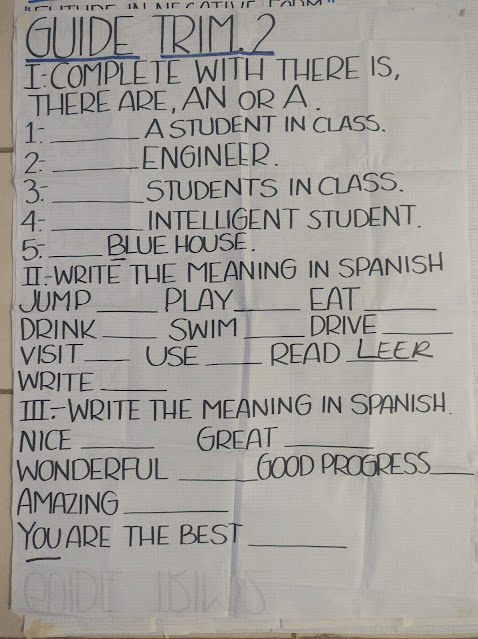 "FUTURE IN NEGATIVE FORM"
GUIDE TRIM. 2
I:-COMPLETE WITH THERE IS,
THERE ARE, AN OR A.
1:- ________ A STUDENT IN CLASS.
2:- ________ ENGINEER.
3:- ________ STUDENTS IN CLASS.
4:- ________ INTELLIGENT STUDENT.
5:- _____ BLUE HOUSE.
II:-WRITE THE MEANING IN SPANISH
JUMP _____ PLAY _____ EAT _____
DRINK _____ SWIM _____ DRIVE _____
VISIT ____ USE _____ READ LEER
WRITE _____
III:-WRITE THE MEANING IN SPANISH.
NICE ______ GREAT ______
WONDERFUL ______ GOOD PROGRESS ____
AMAZING ________
YOU ARE THE BEST ________